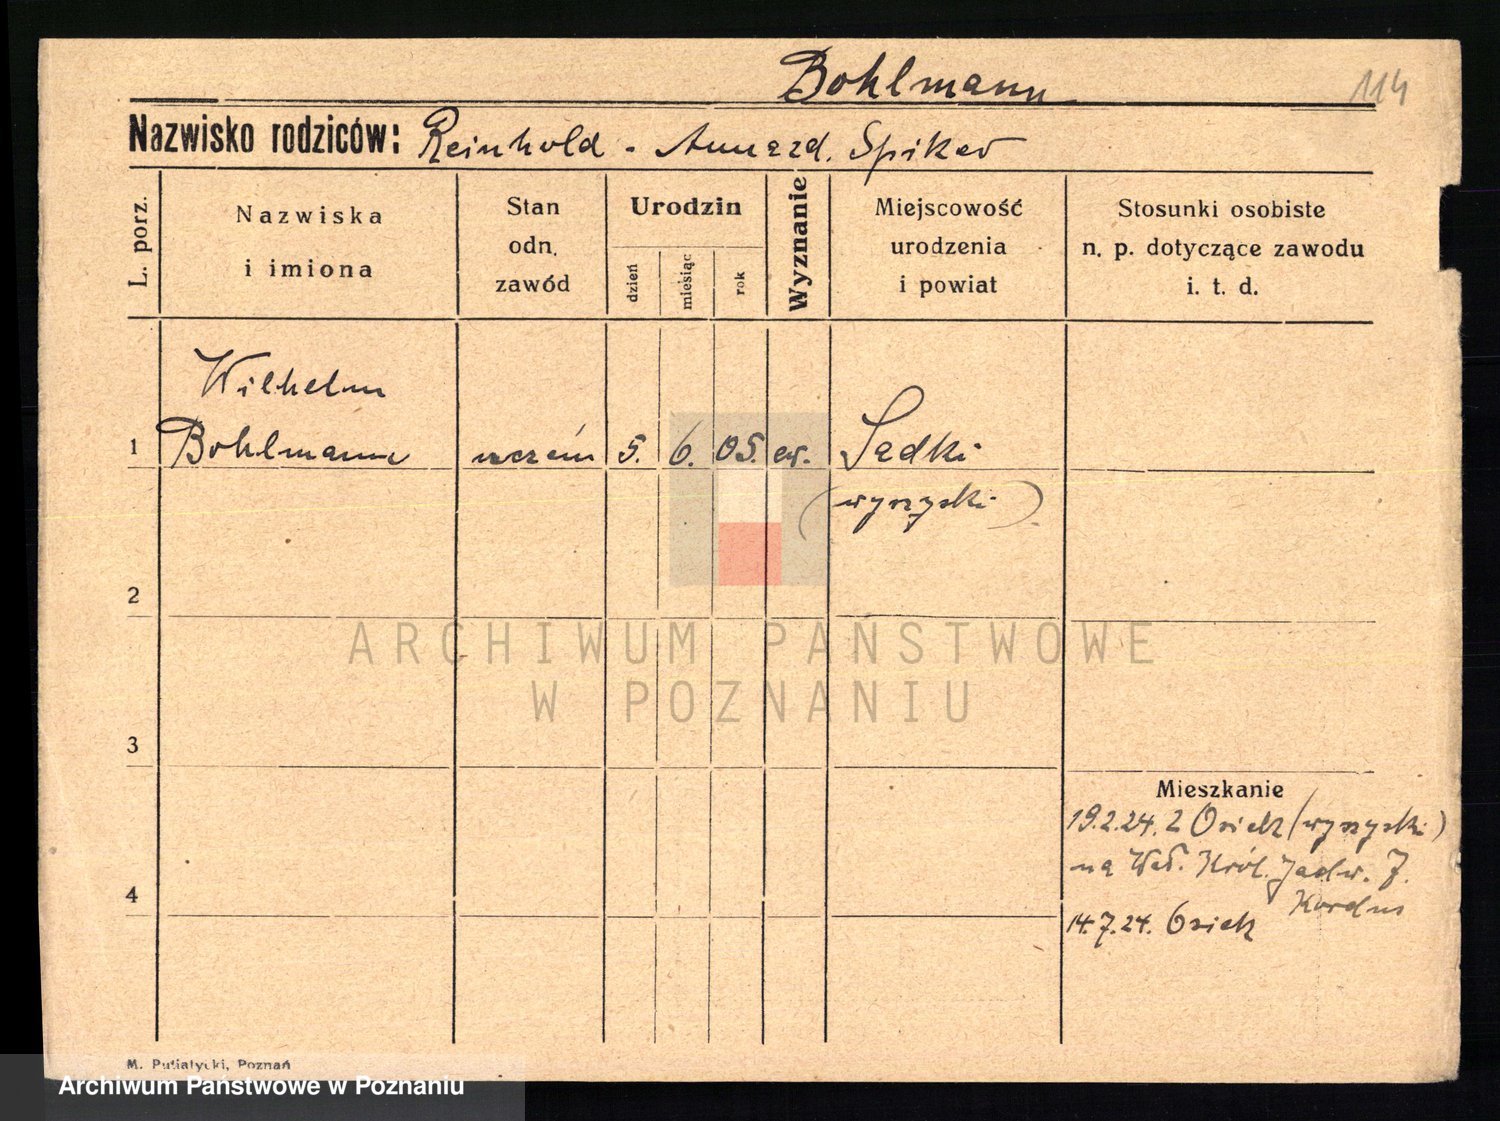 Bohlmann
114
Nazwisko rodziców: Reinhold - Anna zd. Spiker
L. porz.
Nazwiska
i imiona
Stan
odn.
zawód
Urodzin
dzień
miesiąc
rok
Wyznanie
Miejscowość
urodzenia
i powiat
Stosunki osobiste
n. p. dotyczące zawodu
i. t. d.
Wilhelm
1 Bohlmann uczeń 5. 6. 05. ew. Sadki
(wyrzyski).
2
ARCHIWUM PAŃSTWOWE
W POZNANIU
3
Mieszkanie
19.2.24. z Osiek (wyrzyski)
na Wał. Król. Jadw. 7.
4
Kordus
14.7.24. Osiek
M. Putiatycki, Poznań
Archiwum Państwowe w Poznaniu